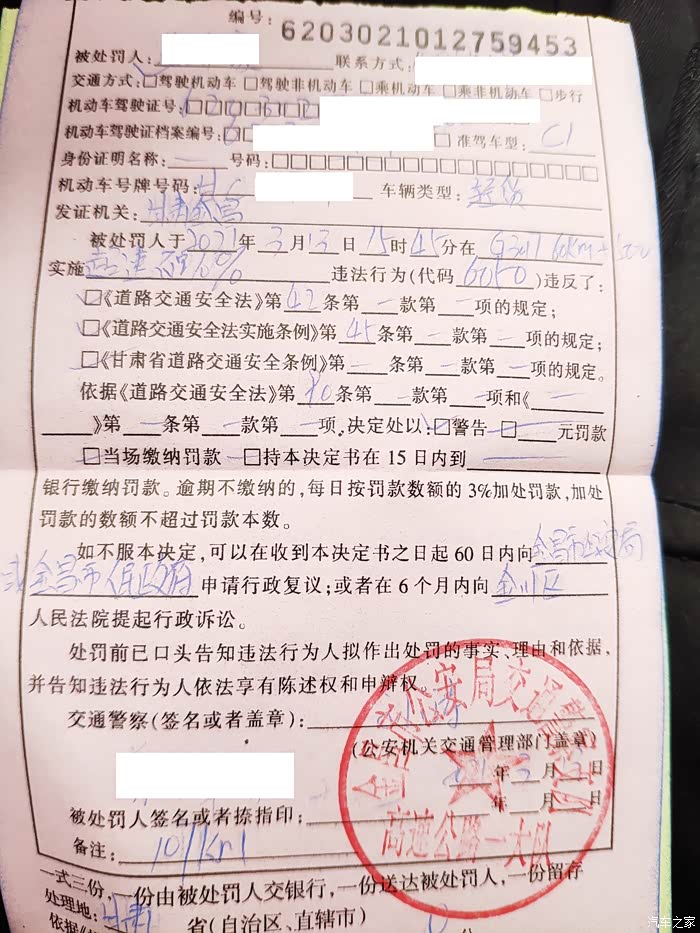 编号: 6203021012759453
被处罚人:
联系方式:
交通方式:□驾驶机动车 □驾驶非机动车 □乘机动车 □乘非机动车 □步行
机动车驾驶证号:
机动车驾驶证档案编号: 准驾车型: C1
身份证明名称: 号码:
机动车号牌号码: 甘C 车辆类型:
发证机关: 甘肃金昌
被处罚人于2021年3月13日15时45分在G30
实施 违法行为(代码6050)违反了:
□《道路交通安全法》第42条第一款第一项的规定;
□《道路交通安全法实施条例》第45条第一款第一项的规定;
□《甘肃省道路交通安全条例》第一条第一款第一项的规定。
依据《道路交通安全法》第90条第一款第一项和《
》第一条第一款第一项,决定处以:□警告 □ 元罚款
□当场缴纳罚款 □持本决定书在15日内到
银行缴纳罚款。逾期不缴纳的,每日按罚款数额的3%加处罚款,加处
罚款的数额不超过罚款本数。
如不服本决定,可以在收到本决定书之日起60日内向金昌市 局
或金昌市人民政府申请行政复议;或者在6个月内向金川区
人民法院提起行政诉讼。
处罚前已口头告知违法行为人拟作出处罚的事实、理由和依据,
并告知违法行为人依法享有陈述权和申辩权。
交通警察(签名或者盖章):
(公安机关交通管理部门盖章)
年 月 日
被处罚人签名或者捺指印: 年 月 日
备注: 101km
高速公路一大队
一式三份,一份由被处罚人交银行,一份送达被处罚人,一份留存
处理地: 甘肃 省(自治区、直辖市)
汽车之家